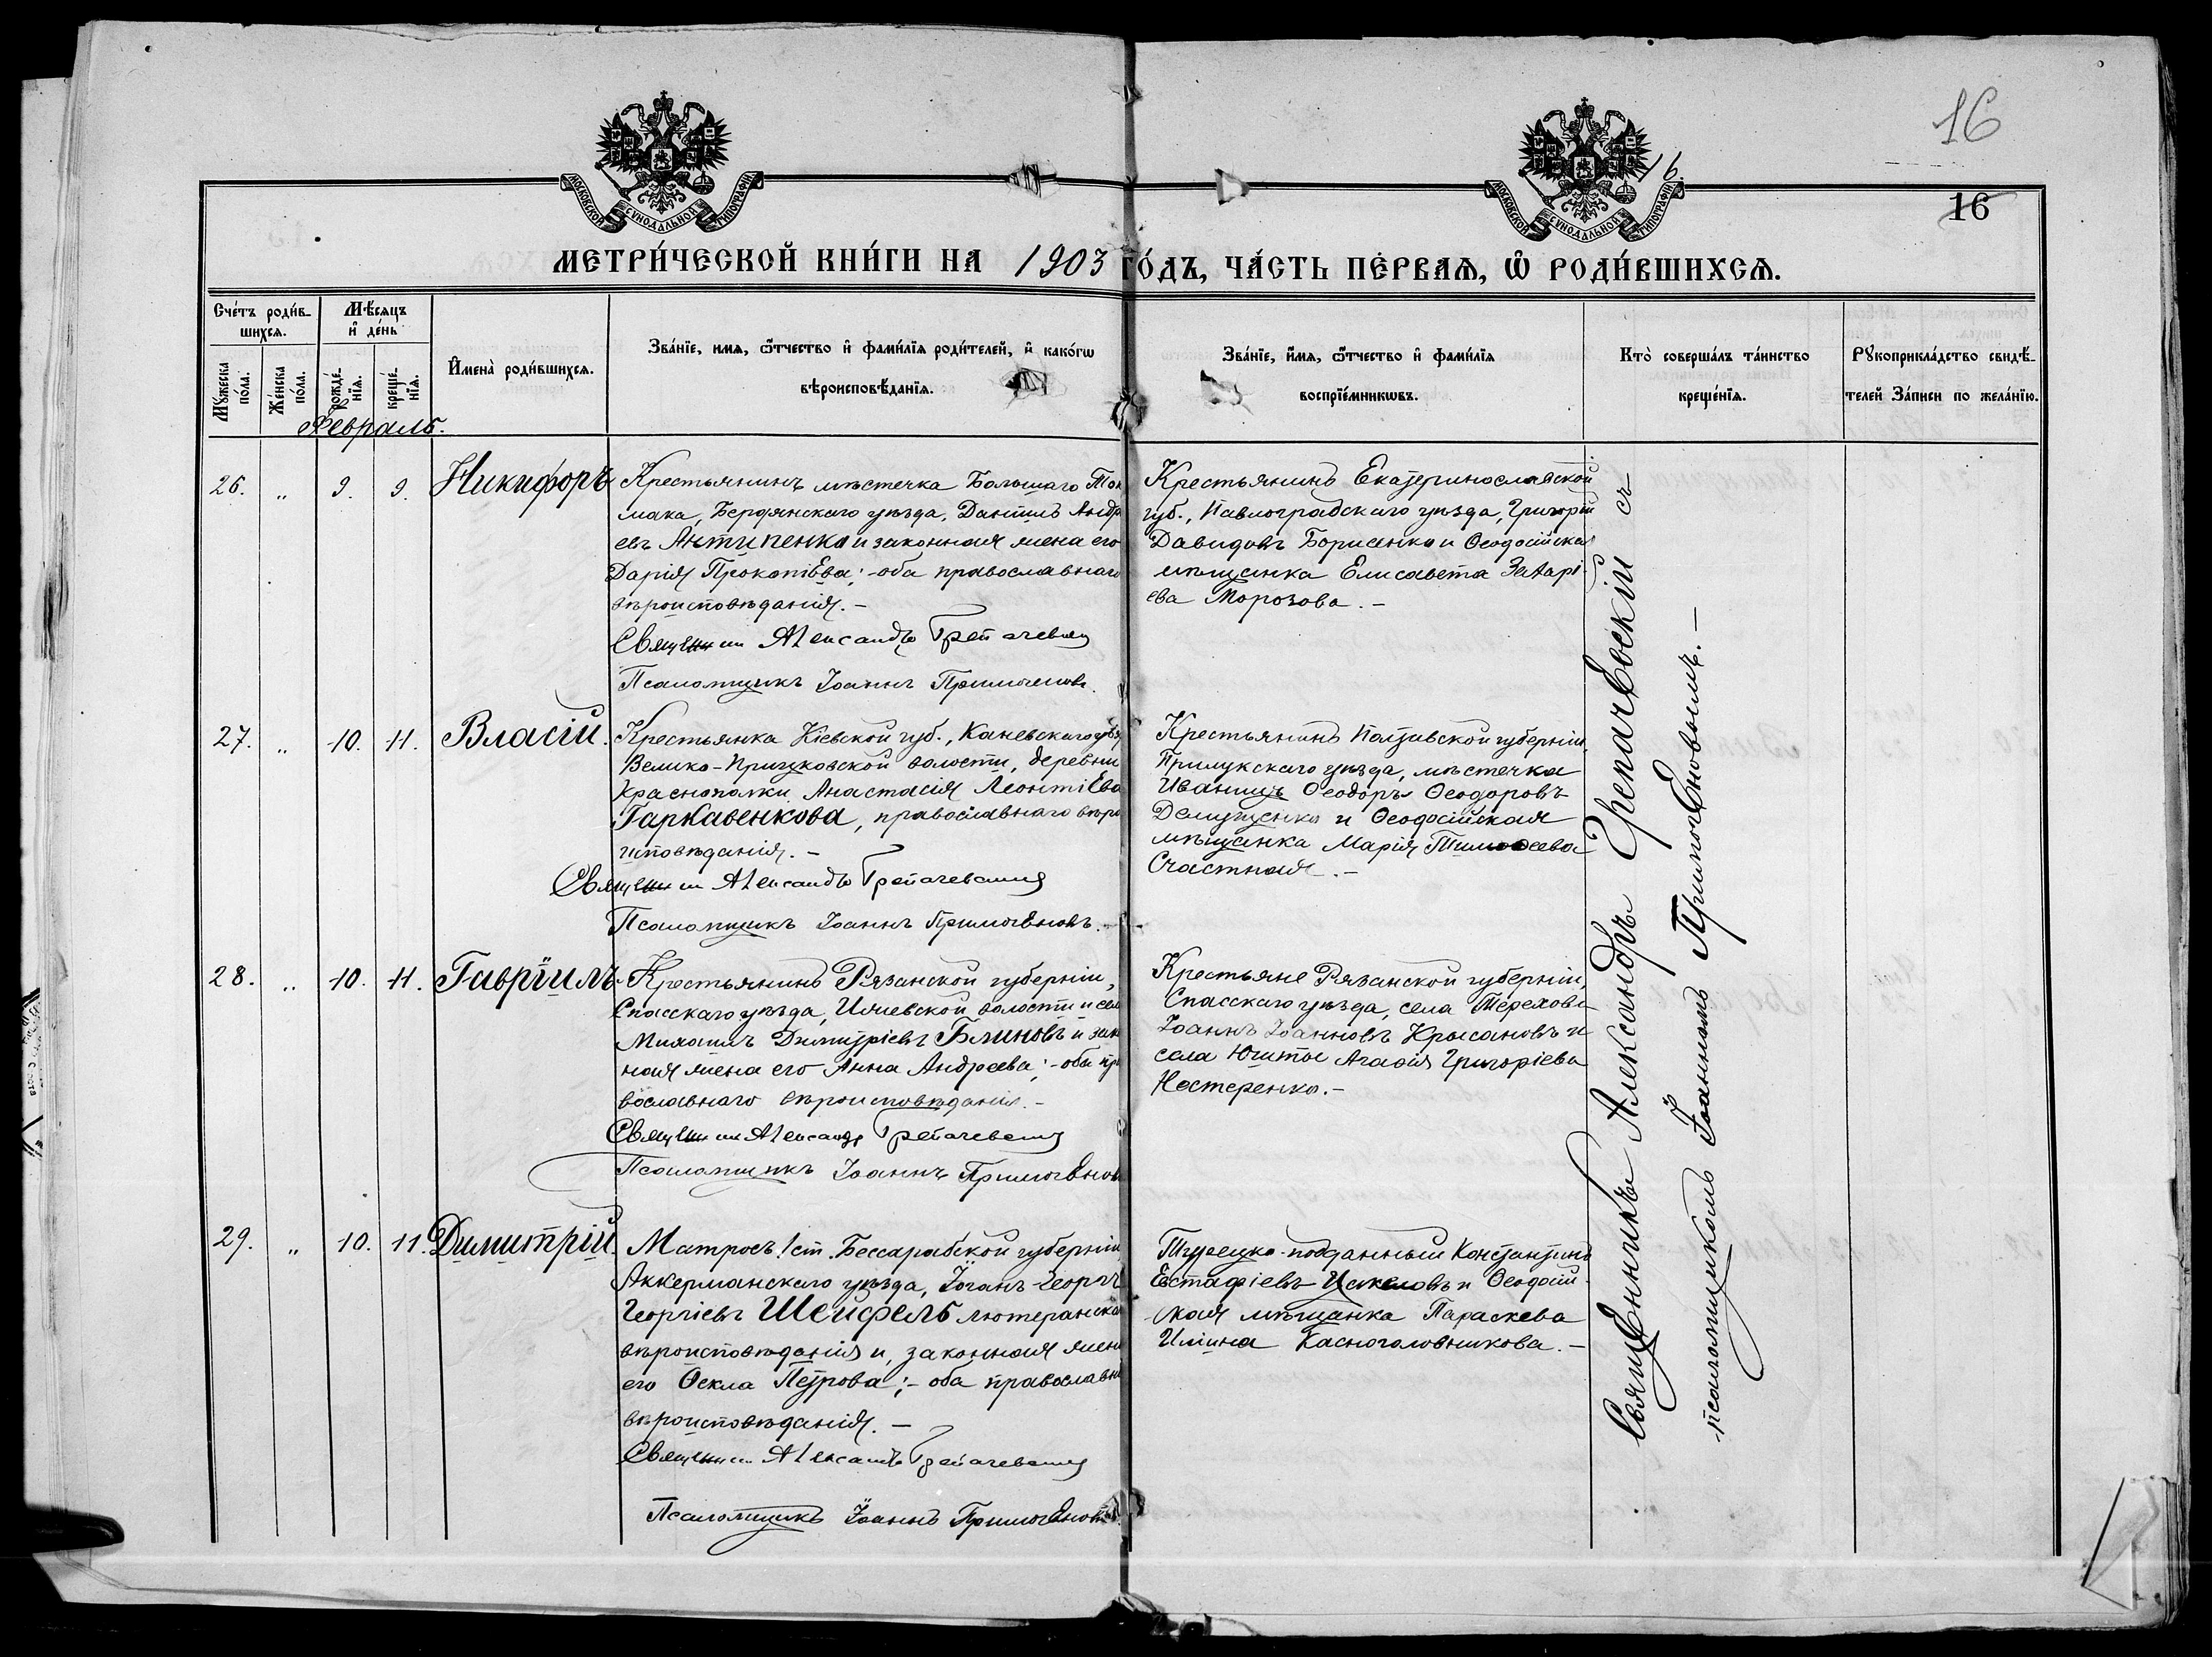 16
16.
16
МОСКОВСКОЙ СѴНОДАЛЬНОЙ ТИПОГРАФІИ
МОСКОВСКОЙ СѴНОДАЛЬНОЙ ТИПОГРАФІИ
МЕТРИ́ЧЕСКОЙ КНИ́ГИ НА 1903 ГО́ДЪ, ЧА́СТЬ ПЕ́РВАЯ, Ѡ҆ РОДИ́ВШИХСЯ.
Сче́тъ роди́в-
шихся.
Мꙋжеска по́ла.
Же́нска по́ла.
Мѣ́сяцъ
и҆ де́нь
рожде́-
нїя.
креще́-
нїя.
И҆мена̀ роди́вшихся.
Зва́нїе, имя, ѻ҆́тчество и҆ фами́лїя роди́телей, и҆ како́гѡ
вѣроисповѣ́данїя.
Зва́нїе, и҆́мя, ѻ҆́тчество и҆ фами́лїя
воспрїе́мникѡвъ.
Кто̀ соверша́лъ та́инство
креще́нїя.
Рꙋкоприкла́дство свидѣ́-
телей За́писи по жела́нїю.
Февраль.
26. „ 9. 9. Никифоръ
Крестьянинъ мѣстечка Большаго Ток
мака, Бердянскаго уѣзда, Даніилъ Андре
евъ Антипенко и законная жена его
Дарія Прокопіева; - оба православнаго
вѣроисповѣданія. -
Священник Александръ Трепачевский
Псаломщикъ Іоаннъ Примогеновъ.
Крестьянинъ Екатеринославской
губ., Павлоградскаго уѣзда, Григорій
Давидовъ Борисенко и Ѳеодосійская
мѣщанка Елисавета Захарі-
ева Морозова. -
27. „ 10. 11. Власій.
Крестьянка Кіевской губ., Каневскаго уѣз
Велико-Прицковской волости, деревни
Краснополки Анастасія Леонтіева
Гаркавенкова, православнаго вѣро
исповѣданія. -
Священник Александръ Трепачевский
Псаломщикъ Іоаннъ Примогеновъ. -
Крестьянинъ Полтавской губерніи,
Прилукскаго уѣзда, мѣстечка
Иваницъ Ѳеодоръ Ѳеодоровъ
и Ѳеодосійская
мѣщанка Марія Тимоѳеева
Счастная. -
28. „ 10. 11. Гавріилъ
Крестьянинъ Рязанской губерніи,
Спасскаго уѣзда, волости и села
Михаилъ Димитріевъ Блиновъ и закон
ная жена его Анна Андреева; - оба пра
вославнаго вѣроисповѣданія. -
Священник Александръ Трепачевский
Псаломщикъ Іоаннъ Примогеновъ
Крестьяне Рязанской губерніи,
Спасскаго уѣзда, села Терехова
Іоаннъ Іоанновъ Крысановъ и
села Ижиты Агаѳія Григоріева
Нестеренко. -
29. „ 10. 11. Димитрій.
Матросъ 1 ст. Бессарабской губерніи
Аккерманскаго уѣзда, Іоганъ-Георгъ
Георгіевъ Шейфель лютеранска
вѣроисповѣданія и, законная жена
его Ѳекла Петрова; - оба православна
вѣроисповѣданія. -
Священник Александръ Трепачевский
Псаломщикъ Іоаннъ Примогеновъ.
Турецко-подданный Константинъ
Евстафіевъ и Ѳеодосій-
ская мѣщанка Параскева
Ильина Касноголовникова. -
Священникъ Александръ Трепачевскій съ
псаломщикомъ Іоанномъ Примогеновымъ. -